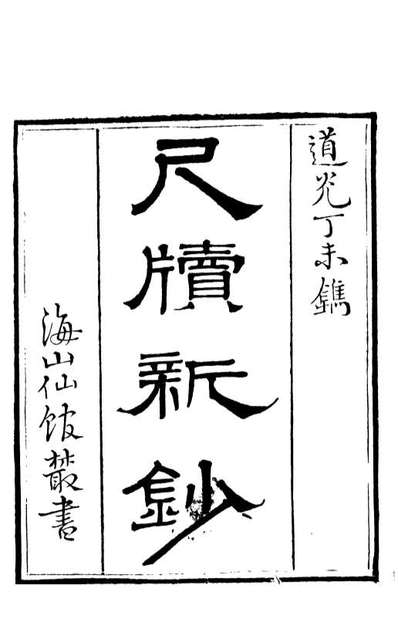 道光丁未鐫
尺牘新鈔
海山仙館叢書